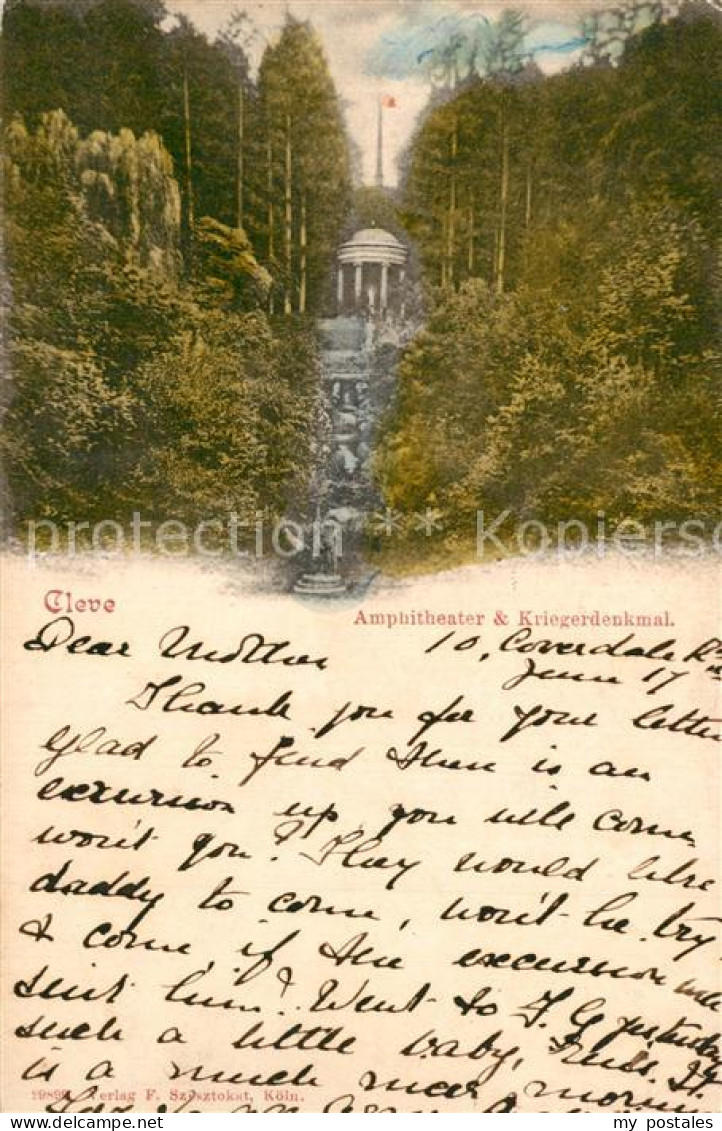 protection ** Kopierschutz
Cleve
Amphitheater & Kriegerdenkmal.
Dear Mother
10, Coverdale Rd
June 17
Thank you for your letter
glad to find there is an
excursion up you will come
won't you? They would like
daddy to come, won't he try
& come if the excursion will
suit him? Went to J. G yesterday
such a little baby,
is a much nicer morning
19899 Verlag F. Szesztokat, Köln.
my postales